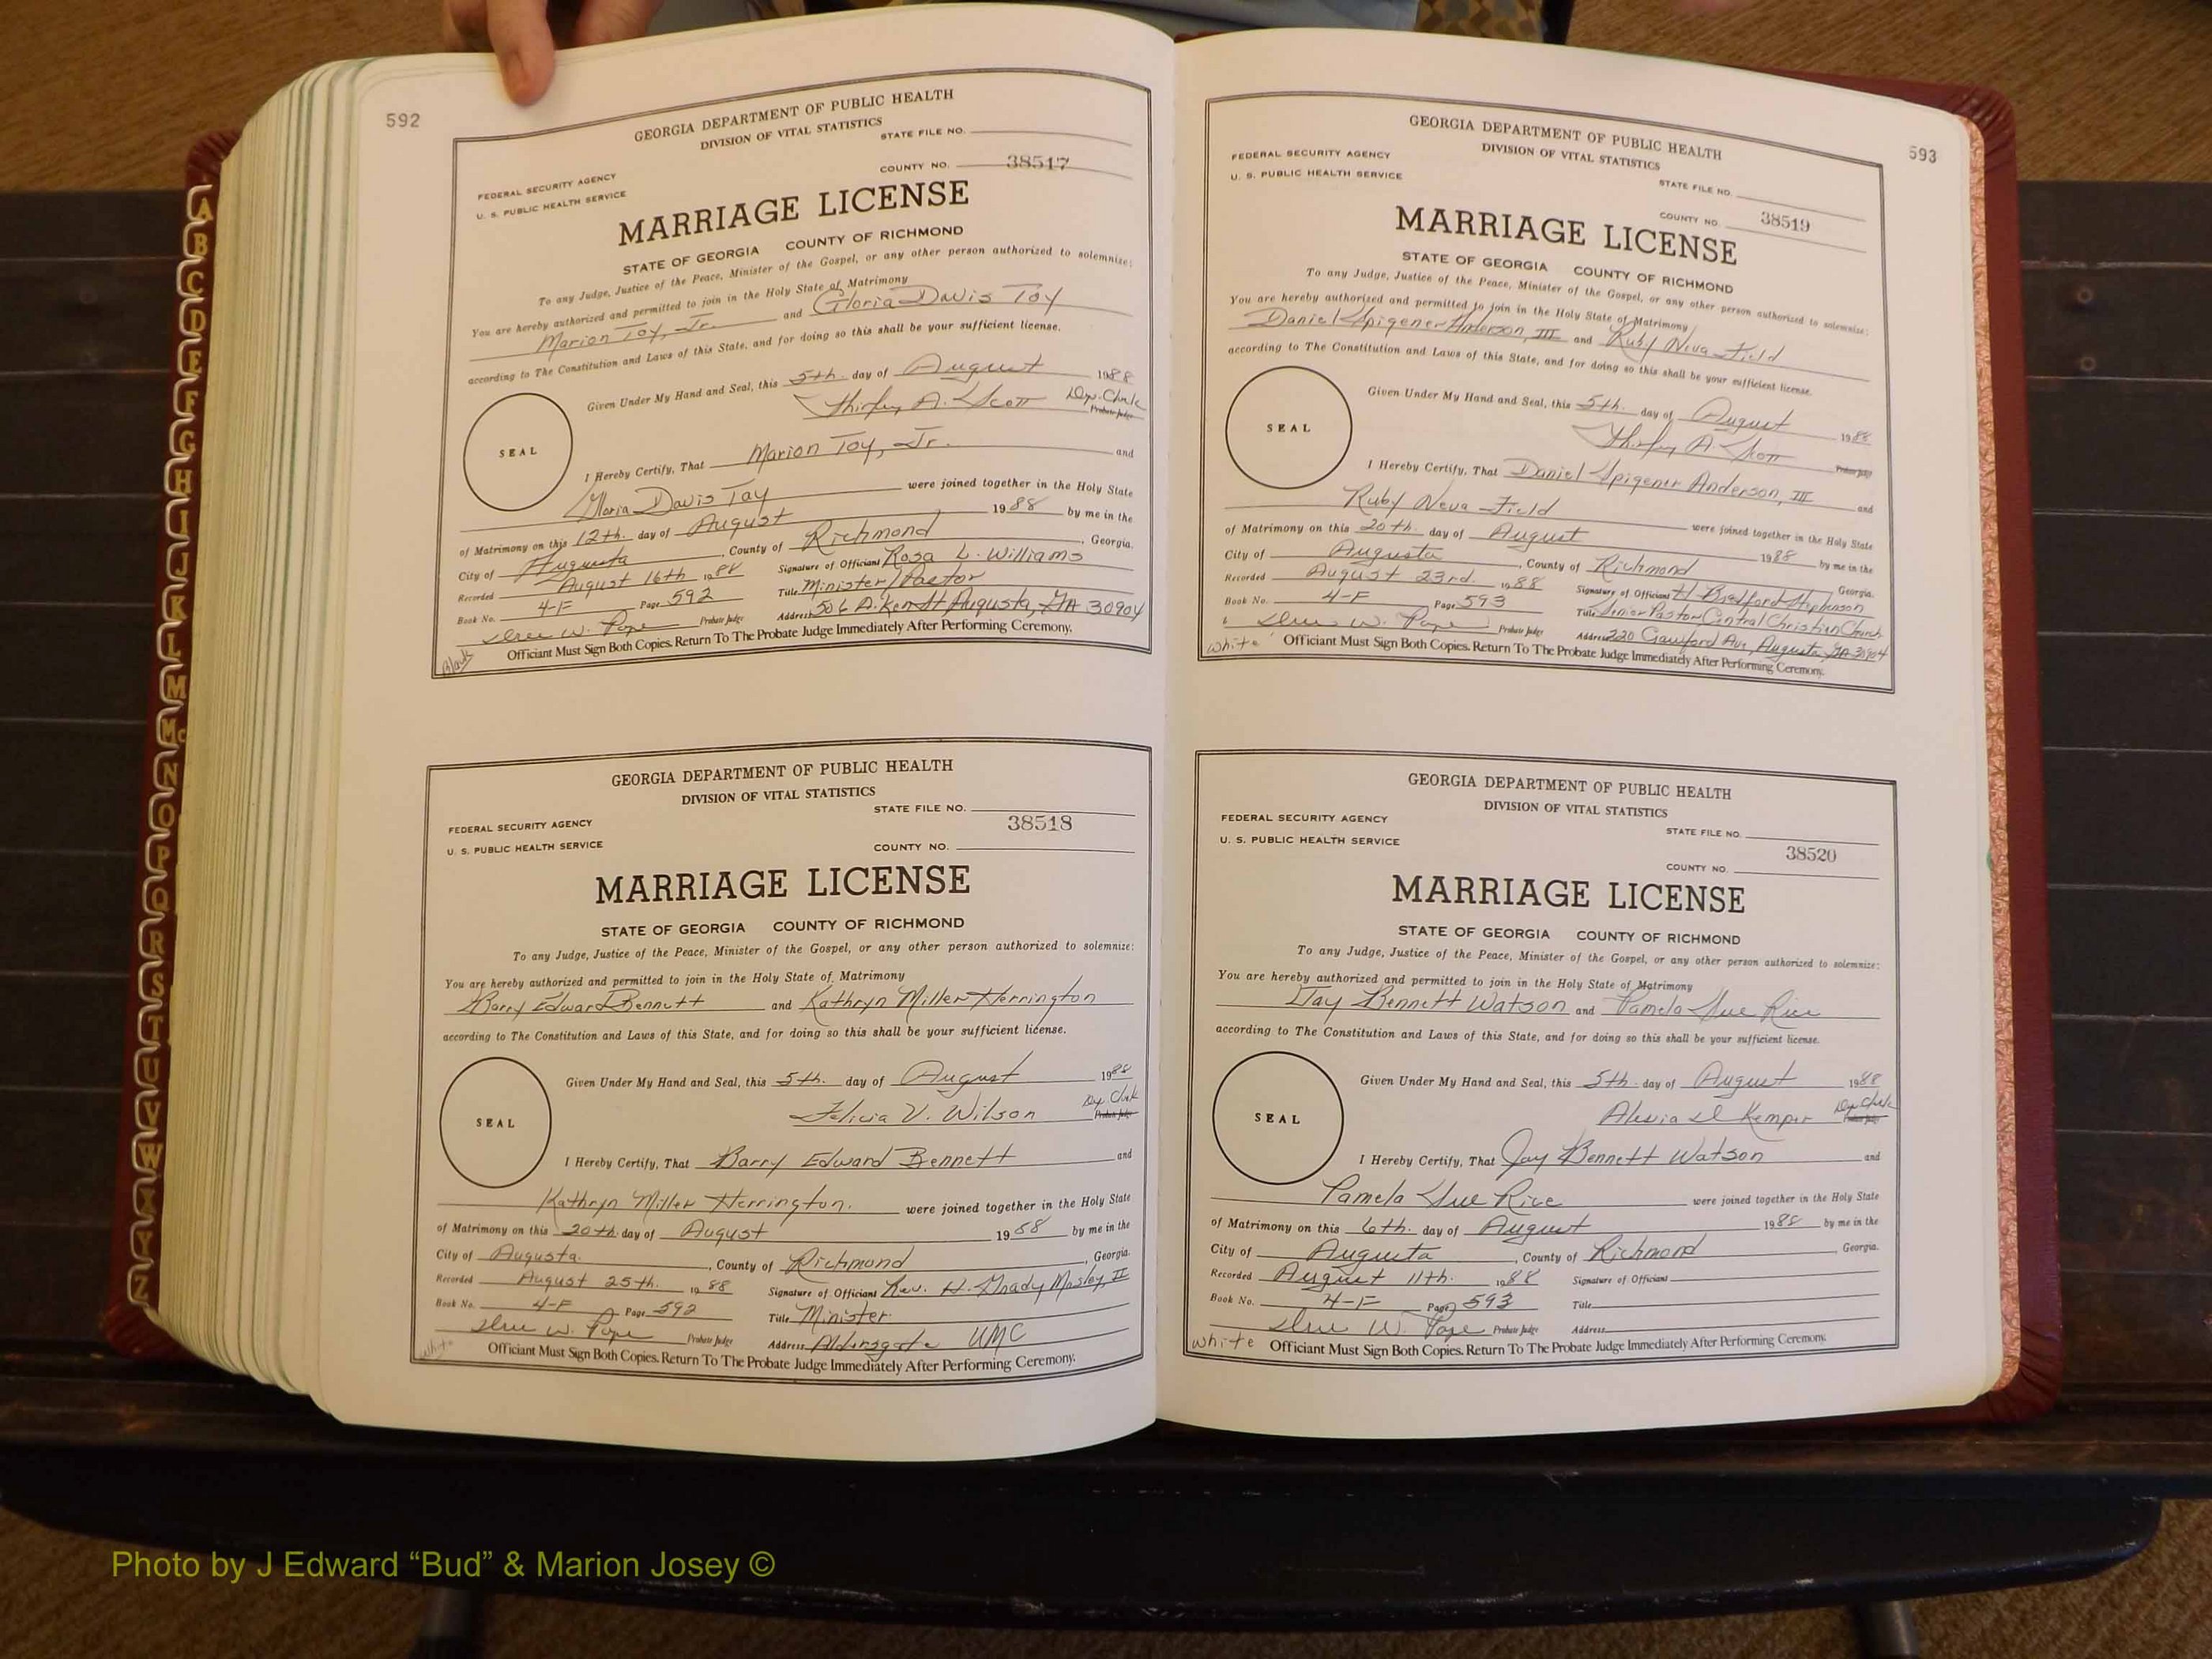 592
GEORGIA DEPARTMENT OF PUBLIC HEALTH
DIVISION OF VITAL STATISTICS
STATE FILE NO.
FEDERAL SECURITY AGENCY
U. S. PUBLIC HEALTH SERVICE
COUNTY NO. 38517
MARRIAGE LICENSE
STATE OF GEORGIA COUNTY OF RICHMOND
To any Judge, Justice of the Peace, Minister of the Gospel, or any other person authorized to solemnize:
You are hereby authorized and permitted to join in the Holy State of Matrimony
Marion Toy, Jr. and Gloria Davis Toy
according to The Constitution and Laws of this State, and for doing so this shall be your sufficient license.
Given Under My Hand and Seal, this 5th. day of August 1988
Shirley A. Scott Dep. Clerk
Probate Judge
SEAL
I Hereby Certify, That Marion Toy, Jr. and
Gloria Davis Toy were joined together in the Holy State
of Matrimony on this 12th. day of August 1988 by me in the
City of Augusta, County of Richmond, Georgia.
Recorded August 16th 1988 Signature of Officiant Rosa L. Williams
Book No. 4-F Page 592 Title Minister/Pastor
W. Pope Probate Judge Address 506 Aiken St Augusta, GA 30904
Black Officiant Must Sign Both Copies. Return To The Probate Judge Immediately After Performing Ceremony.
GEORGIA DEPARTMENT OF PUBLIC HEALTH
DIVISION OF VITAL STATISTICS
STATE FILE NO.
38518
FEDERAL SECURITY AGENCY
U. S. PUBLIC HEALTH SERVICE
COUNTY NO.
MARRIAGE LICENSE
STATE OF GEORGIA COUNTY OF RICHMOND
To any Judge, Justice of the Peace, Minister of the Gospel, or any other person authorized to solemnize:
You are hereby authorized and permitted to join in the Holy State of Matrimony
Barry Edward Bennett and Kathryn Miller Herrington
according to The Constitution and Laws of this State, and for doing so this shall be your sufficient license.
Given Under My Hand and Seal, this 5th. day of August 1988
Felicia V. Wilson Dep. Clerk
Probate Judge
SEAL
I Hereby Certify, That Barry Edward Bennett and
Kathryn Miller Herrington. were joined together in the Holy State
of Matrimony on this 20th. day of August 1988 by me in the
City of Augusta. , County of Richmond , Georgia.
Recorded August 25th. 1988 Signature of Officiant Rev. H. Grady Mosley, II
Book No. 4-F Page 592 Title Minister
W. Pope Probate Judge Address Aldersgate UMC
white Officiant Must Sign Both Copies. Return To The Probate Judge Immediately After Performing Ceremony.
593
GEORGIA DEPARTMENT OF PUBLIC HEALTH
DIVISION OF VITAL STATISTICS
FEDERAL SECURITY AGENCY
U. S. PUBLIC HEALTH SERVICE
STATE FILE NO.
COUNTY NO. 38519
MARRIAGE LICENSE
STATE OF GEORGIA COUNTY OF RICHMOND
To any Judge, Justice of the Peace, Minister of the Gospel, or any other person authorized to solemnize:
You are hereby authorized and permitted to join in the Holy State of Matrimony
Daniel Spigener Anderson, III and Ruby Neva Field
according to The Constitution and Laws of this State, and for doing so this shall be your sufficient license.
Given Under My Hand and Seal, this 5th. day of August 1988
Shirley A. Scott
Probate Judge
SEAL
I Hereby Certify, That Daniel Spigener Anderson, III and
Ruby Neva Field were joined together in the Holy State
of Matrimony on this 20th. day of August 1988 by me in the
City of Augusta , County of Richmond Georgia.
Recorded August 23rd. 1988 Signature of Officiant H. Bradford Stephenson
Book No. 4-F Page 593 Title Senior Pastor Central Christian Church
W. Pope Probate Judge Address 220 Crawford Ave, Augusta, GA 30904
white Officiant Must Sign Both Copies. Return To The Probate Judge Immediately After Performing Ceremony.
GEORGIA DEPARTMENT OF PUBLIC HEALTH
DIVISION OF VITAL STATISTICS
FEDERAL SECURITY AGENCY
STATE FILE NO.
U. S. PUBLIC HEALTH SERVICE
38520
COUNTY NO.
MARRIAGE LICENSE
STATE OF GEORGIA COUNTY OF RICHMOND
To any Judge, Justice of the Peace, Minister of the Gospel, or any other person authorized to solemnize:
You are hereby authorized and permitted to join in the Holy State of Matrimony
Jay Bennett Watson and Pamela Sue Rice
according to The Constitution and Laws of this State, and for doing so this shall be your sufficient license.
Given Under My Hand and Seal, this 5th. day of August 1988
Alexia D Kemper Dep Clerk
Probate Judge
SEAL
I Hereby Certify, That Jay Bennett Watson and
Pamela Sue Rice were joined together in the Holy State
of Matrimony on this 6th. day of August 1988 by me in the
City of Augusta , County of Richmond , Georgia.
Recorded August 11th. 1988 Signature of Officiant
Book No. 4-F Page 593 Title
W. Pope Probate Judge Address
white Officiant Must Sign Both Copies. Return To The Probate Judge Immediately After Performing Ceremony.
A
B
C
D
E
F
G
H
I
J
K
L
M
Mc
N
O
P
Q
R
S
T
U
V
W
X
Y
Z
Photo by J Edward “Bud” & Marion Josey ©